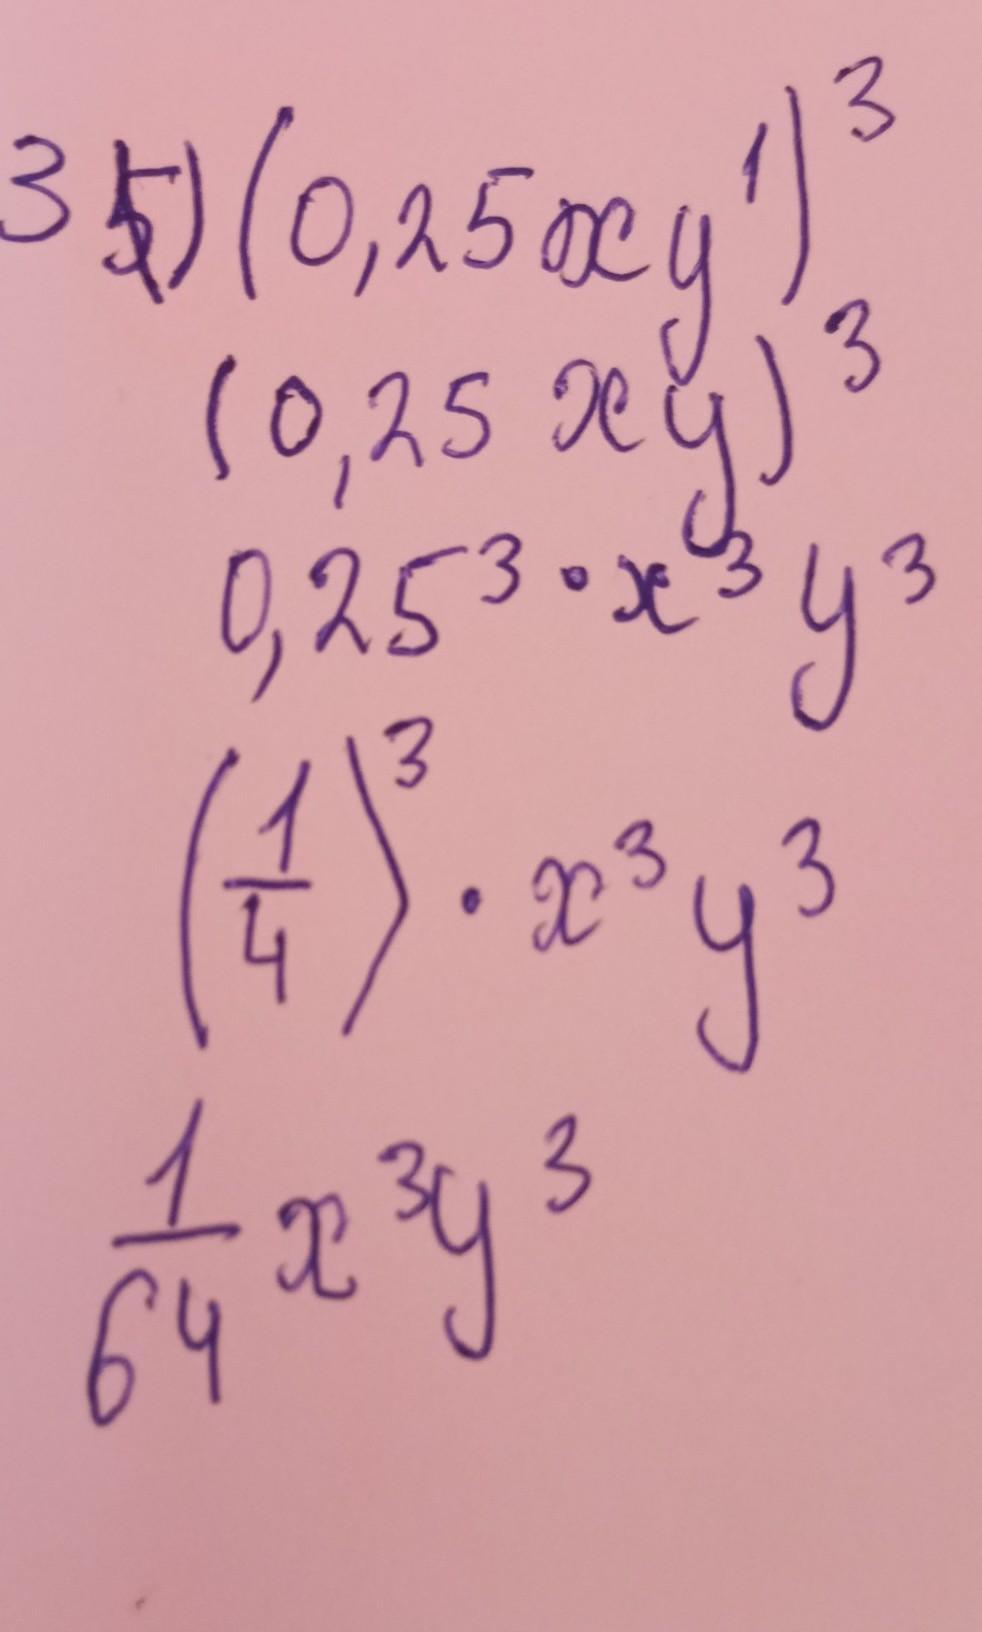 3 5) (0,25xy¹)³
(0,25 xy)³
0,25³ · x³ y³
(1/4)³ · x³ y³
1/64 x³y³